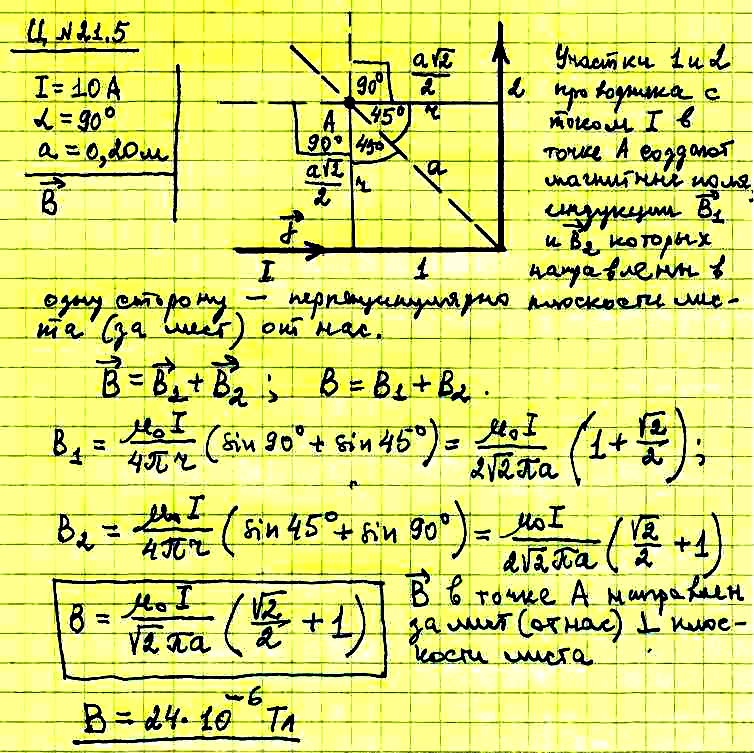 Ц №21.5
I = 10 А
α = 90°
a = 0,20 м
B⃗
90° a√2/2
A 45° r 2
90° 45°
a√2/2 r a
j⃗
I 1
Участки 1 и 2
проводника с
током I в
точке А создают
магнитные поля,
индукции B⃗₁
и B⃗₂ которых
направлены в
одну сторону – перпендикулярно плоскости лис-
та (за лист) от нас.
B⃗ = B⃗₁ + B⃗₂ ; B = B₁ + B₂ .
B₁ = μ₀I/4πr (sin 90° + sin 45°) = μ₀I/2√2πa (1 + √2/2) ;
B₂ = μ₀I/4πr (sin 45° + sin 90°) = μ₀I/2√2πa (√2/2 + 1)
B = μ₀I/√2πa (√2/2 + 1)
B⃗ в точке А направлен
за лист (от нас) ⊥ плос-
кости листа
B = 24·10⁻⁶ Тл